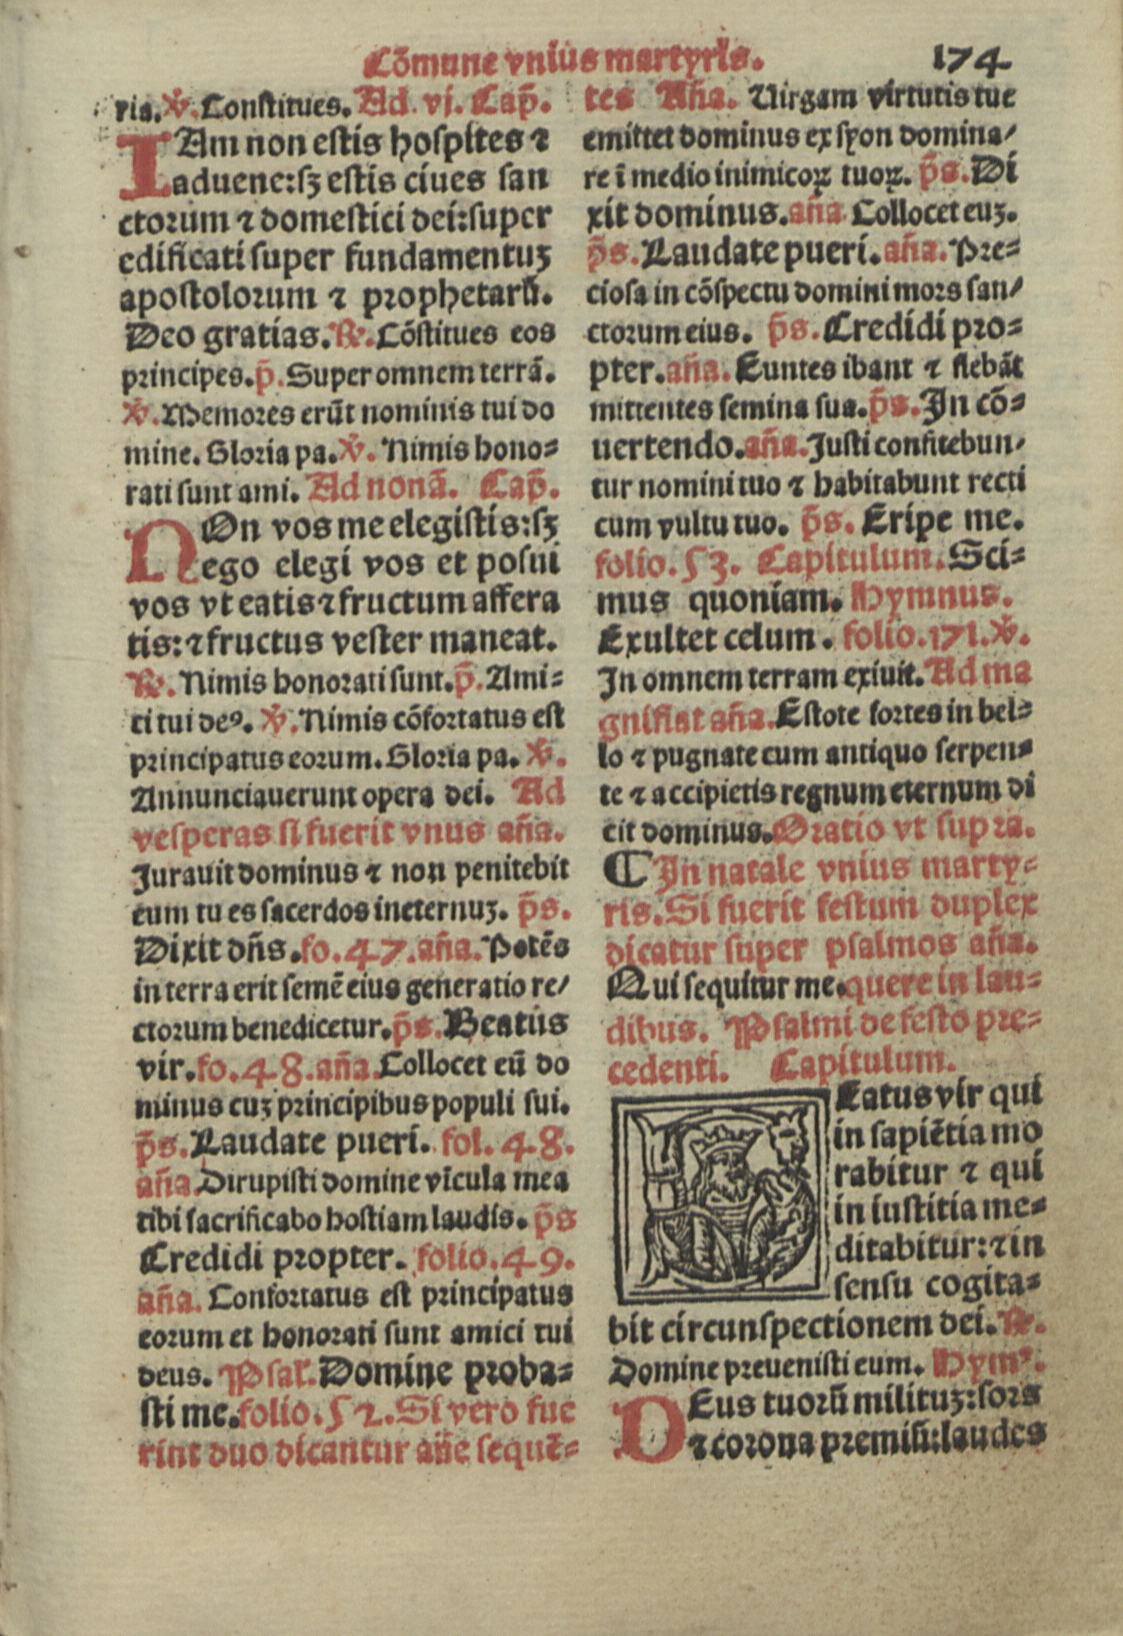 Cōmune vnius martyris. 174
ria. ℣. Constitues. Ad. vj. Cap̄.
IAm non estis hospites ⁊
aduene: sꝫ estis ciues san
ctorum ⁊ domestici dei: super
edificati super fundamentuꝫ
apostolorum ⁊ prophetarū.
Deo gratias. ℟. Cōstitues eos
principes. p̄. Super omnem terrā.
℣. Memores erūt nominis tui do
mine. Gloria pa. ℣. Nimis hono-
rati sunt ami. Ad nonā. Cap̄.
NOn vos me elegistis: sꝫ
ego elegi vos et posui
vos vt eatis ⁊ fructum affera
tis: ⁊ fructus vester maneat.
℟. Nimis honorati sunt. p̄. Ami-
ci tui deꝰ. ℣. Nimis cōfortatus est
principatus eorum. Gloria pa. ℣.
Annunciauerunt opera dei. Ad
vesperas si fuerit vnus an̄a.
Jurauit dominus ⁊ non penitebit
eum tu es sacerdos in eternuꝫ. p̄s.
Dixit dn̄s. fo. 47. an̄a. Potēs
in terra erit semē eius generatio re/
ctorum benedicetur. p̄s. Beatus
vir. fo. 48. an̄a. Collocet eū do
minus cuꝫ principibus populi sui.
p̄s. Laudate pueri. fol. 48.
an̄a. Dirupisti domine vīcula mea
tibi sacrificabo hostiam laudis. p̄s
Credidi propter. folio. 49.
an̄a. Confortatus est principatus
eorum et honorati sunt amici tui
deus. Psal. Domine proba-
sti me. folio. 52. Si vero fue
rint duo dicantur an̄e sequē-
tes An̄a. Uirgam virtutis tue
emittet dominus ex syon domina/
re ī medio inimicoꝝ tuoꝝ. p̄s. Di
xit dominus. an̄a. Collocet euꝫ.
p̄s. Laudate pueri. an̄a. Pre-
ciosa in cōspectu domini mors san/
ctorum eius. p̄s. Credidi pro-
pter. an̄a. Euntes ibant ⁊ flebāt
mittentes semina sua. p̄s. In cō-
uertendo. an̄a. Justi confitebun/
tur nomini tuo ⁊ habitabunt recti
cum vultu tuo. p̄s. Eripe me.
folio. 53. Capitulum. Sci-
mus quoniam. Hymnus.
Exultet celum. folio. 171. ℣.
In omnem terram exiuit. Ad ma
gnifiat an̄a. Estote fortes in bel-
lo ⁊ pugnate cum antiquo serpen-
te ⁊ accipietis regnum eternum di
cit dominus. Oratio vt supra.
¶ In natale vnius marty-
ris. Si fuerit festum duplex
dicatur super psalmos an̄a.
Qui sequitur me. quere in lau-
dibus. Psalmi de festo pre-
cedenti. Capitulum.
BEatus vir qui
in sapiētia mo
rabitur ⁊ qui
in iustitia me-
ditabitur: ⁊ in
sensu cogita-
bit circunspectionem dei. ℟.
Domine preuenisti eum. Hymꝰ.
DEus tuorū milituꝫ: sors
⁊ corona premiū: laudes